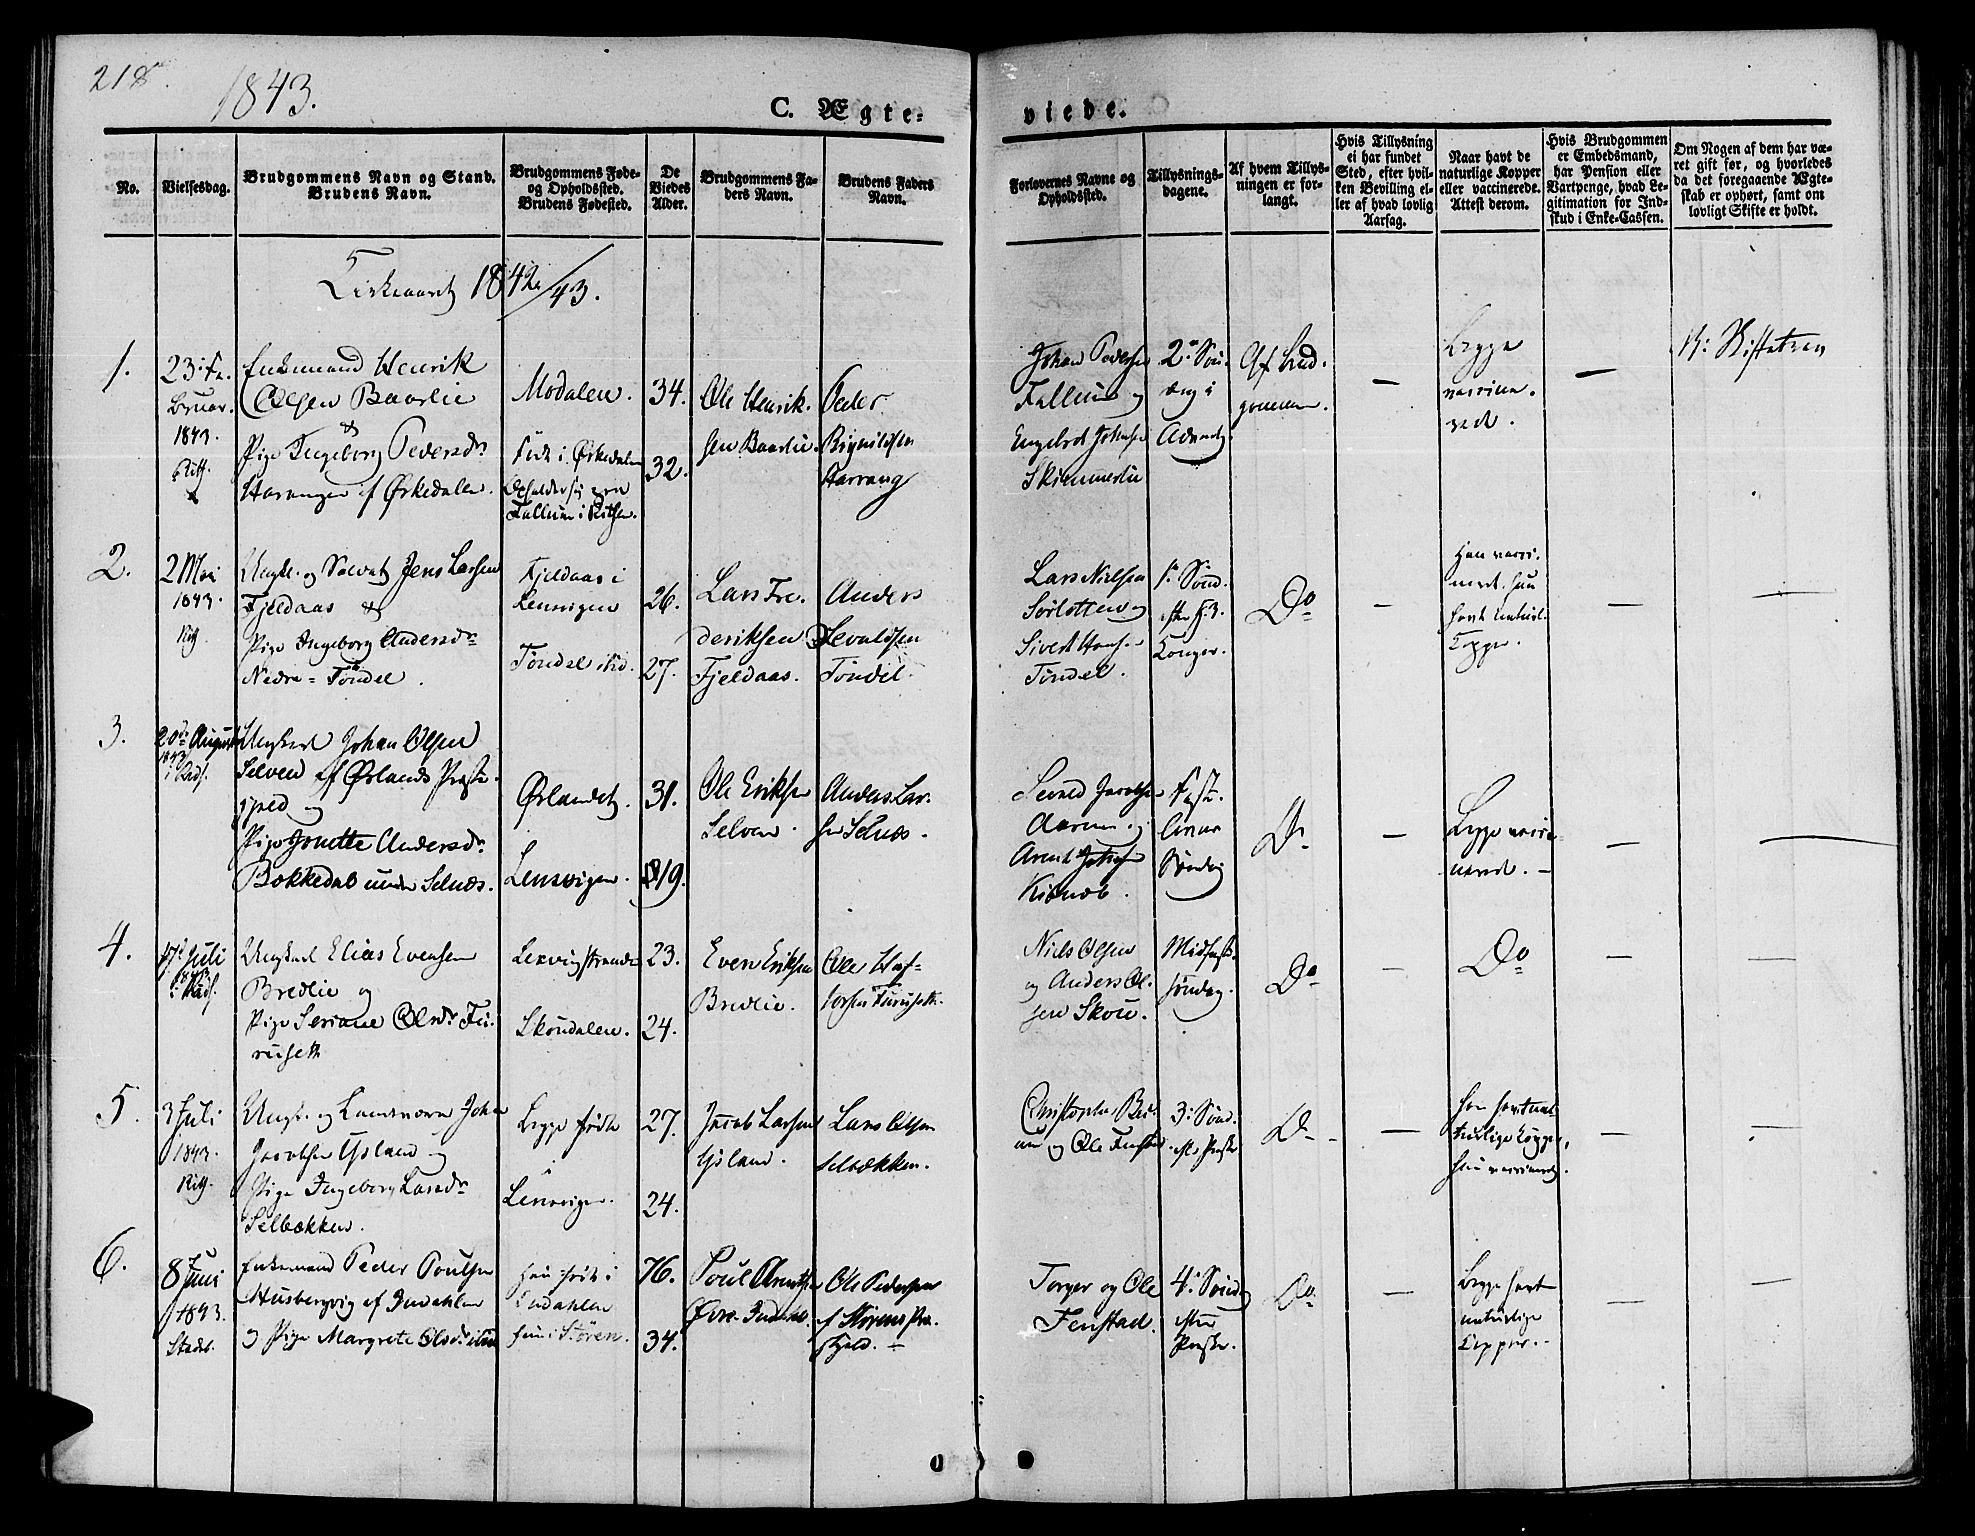 218.
1843.
C. Ægte-
viede.
No.
Vielsesdag.
Brudgommens Navn og Stand.
Brudens Navn.
Brudgommens Føde-
og Opholdssted.
Brudens Fødested.
De
Viedes
Alder.
Brudgommens Fa-
ders Navn.
Brudens Faders
Navn.
Forlovernes Navne og
Opholdssted.
Tillysnings-
dagene.
Af hvem Tillys-
ningen er for-
langt.
Hvis Tillysning
ei har fundet
Sted, efter hvil-
ken Bevilling el-
ler af hvad lovlig
Aarsag.
Naar havt de
naturlige Kopper
eller vaccinerede.
Attest derom.
Hvis Brudgommen
er Embedsmand,
har Pension eller
Vartpenge, hvad Le-
gitimation for Ind-
skud i Enke-Cassen.
Om Nogen af dem har væ-
ret gift før, og hvorledes
da det foregaaende Ægte-
skab er ophørt, samt om
lovligt Skifte er holdt.
Kirkeaaret 1842/43.
1.
23: Fe-
bruar.
1843.
Enkemand Henrik
Olsen Baarlie
&
Pige Ingeborg Pedersdr
Harangen af Ørkedalen.
Modalen.
Født i Ørkedalen
34.
32.
Ole Henrik-
sen Baarlie.
Peder
Harrang
Johan Pedersen
Fallium og
Engelbret Johnsen
Skimmerlie
2n Søn-
dag i
Advent.
Af Brud-
gommen.
—
Begge
vaccine-
rede.
—
2.
2 Mai
1843
Ungk. og Soldat Jens Larsen
Fjeldaas &
Pige Ingeborg Andersdr
Nedre-Tøndel.
Fjeldaas i
Lensvigen
Tøndel ibid.
26.
27.
Lars Fre-
deriksen
Fjeldaas.
Anders
Tøndel.
Lars Nielsen
Sørlotten og
Sivert Hans-
Tøndel.
1n Sønd.
efter H. 3.
Konger.
Do
—
Han vacci-
neret. hun
havt naturl.
Kopper.
—
—
3.
20de August
1843
Ungkarl Johan Olsen
Selven af Ørlands Præste-
gjeld og
Pige Jonette Andersdr
Bakkedal under Selnæs.
Ørlandet.
Lensvigen.
31.
19.
Ole Eriksen
Selven.
Anders Lar-
sen Selnæs.
Jacobsen
Aarnes og
Arent Johnsen
Faste-
lavns
Søndag
Do
—
Begge vacci-
nerede. —
—
—
4.
17de Juli
1843
Ungkarl Elias Evensen
Bredlie og
Pige Seriane Olsdr Fu-
ruseth
Lexvigstranden
Skøudalen.
23.
24.
Even Eriksen
Bredlie.
Ole Haf-
torsen Furuseth.
Niels Olsen
og Anders Ol-
sen Skou.
Midfaste-
søndag.
Do
—
Do
—
—
5.
3 Juli
1843.
Ungk. og Landværn Johan
Jacobsen Ysland og
Pige Ingeborg Larsdr
Selbækken.
Begge fødte
i
Lensvigen.
27.
24.
Jacob Larsen
Ysland.
Lars Olsen
Selbækken.
Christopher Bed-
um og Ole Fenstad
3: Sønd.
eft. Paaske
Do
—
han havt nat-
urlige Kopper,
hun vaccineret.
—
6.
8 Juni
1843.
Stads.
Enkemand Peder Poulsen
Husbergvig af Indahlen
og Pige Margrete Olsdr ibid
Han født i
Indahlen
hun i Støren.
76.
34.
Poul Arentsen
Øvre-Indahl.
Ole Pedersen
af Størens Præ-
stgjeld. —
Torger og Ole
Fenstad.
4: Søndag
efter
Paaske.
Do
—
Begge havt
naturlige
Kopper. —
—
—